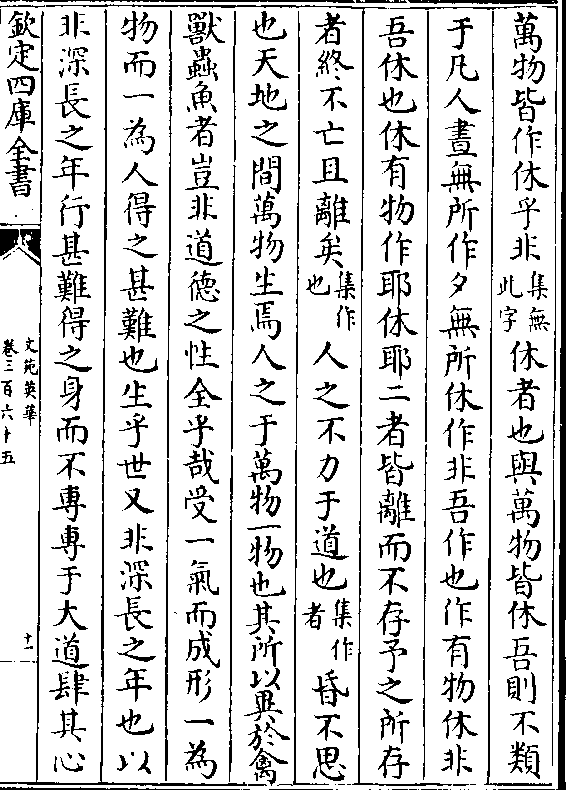 萬物皆作休乎非集無此字休者也與萬物皆休吾則不類
于凡人晝無所作夕無所休作非吾作也作有物休非
吾休也休有物作耶休耶二者皆離而不存予之所存
者終不亡且離矣集作也人之不力于道也集作者昏不思
也天地之間萬物生焉人之于萬物一物也其所以異於禽
獸蟲魚者豈非道德之性全乎哉受一氣而成形一為
物而一為人得之甚難也生乎世又非深長之年也以
非深長之年行甚難得之身而不專專于大道肆其心
欽定四庫全書
文苑英華
卷三百六十五
十一